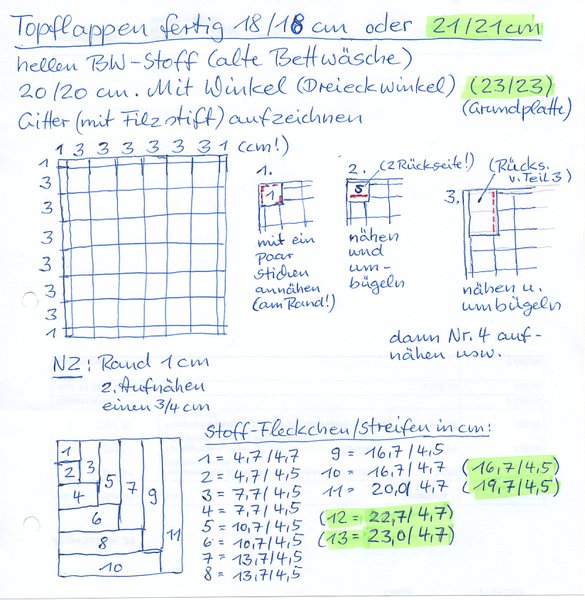 Topflappen fertig 18/18 cm oder 21/21cm
hellen BW-Stoff (alte Bettwäsche)
20/20 cm. Mit Winkel (Dreieckwinkel) (23/23)
(Grundplatte)
Gitter (mit Filzstift) aufzeichnen
1 3 3 3 3 3 3 1 (cm!)
1
3
3
3
3
3
3
1
1.
1
mit ein
paar
Stichen
annähen
(am Rand!)
2. (2 Rückseite!)
nähen
und
um-
bügeln
3. (Rücks.
v. Teil 3)
nähen u.
umbügeln
dann Nr. 4 auf-
nähen usw.
NZ: Rand 1 cm
2. Aufnähen
einen 3/4 cm
1
2 3
4
5
6
7
8
9
10
11
Stoff-Fleckchen/Streifen in cm:
1 = 4,7/4,7
2 = 4,7/4,5
3 = 7,7/4,5
4 = 7,7/4,5
5 = 10,7/4,5
6 = 10,7/4,5
7 = 13,7/4,5
8 = 13,7/4,5
9 = 16,7/4,5
10 = 16,7/4,7 (16,7/4,5)
11 = 20,0/4,7 (19,7/4,5)
(12 = 22,7/4,7)
(13 = 23,0/4,7)